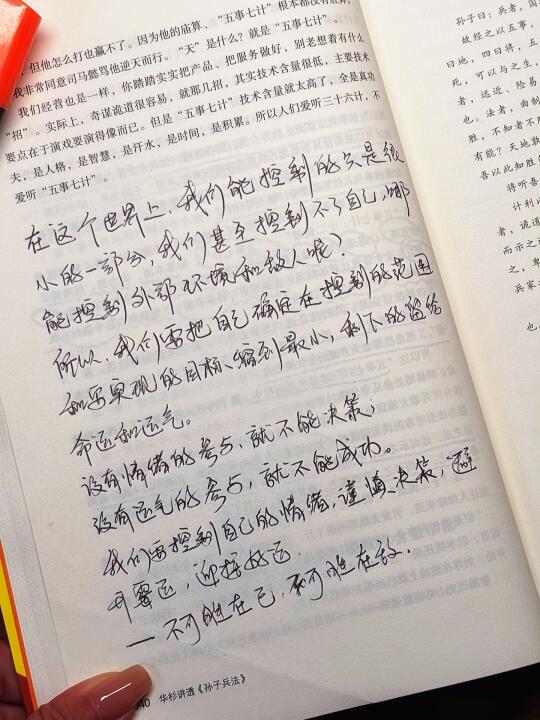 ，但他怎么打也赢不了。因为他的庙算、“五事七计”根本都没有胜算，
我非常同意司马懿骂他逆天而行。“天”是什么？就是“五事七计”。
我们经营也是一样，你踏踏实实把产品、把服务做好，别老想着有什么
“招”。实际上，奇谋诡道很容易，就那几招，其实技术含量很低，主要技术
要点在于演戏要演得像而已。但是“五事七计”技术含量就太高了，全是真功
夫，是人格，是智慧，是汗水，是时间，是积累。所以人们爱听三十六计，不
爱听“五事七计”。
在这个世界上，我们能控制的只是很
小的一部分，我们甚至控制不了自己，哪
能控制外部环境和敌人呢？
所以，我们需把自己确定在控制的范围
和要实现的目标、缩到最小，剩下的留给
命运和运气。
没有情绪的参与，就不能决策；
没有运气的参与，就不能成功。
我们要控制自己的情绪，谨慎决策，避
开霉运，迎接好运
一 不可胜在己，可胜在敌．
40 华杉讲透《孙子兵法》
孙子曰：兵者，国
故经之以五事，
曰地，四曰将，五
死，可以与之生，
者，远近、险易
也。法者，曲制
胜，不知者不
有能？天地孰
吾以此知胜
将听吾
计利以
者，诡道
而示之
之，卑
兵家
也